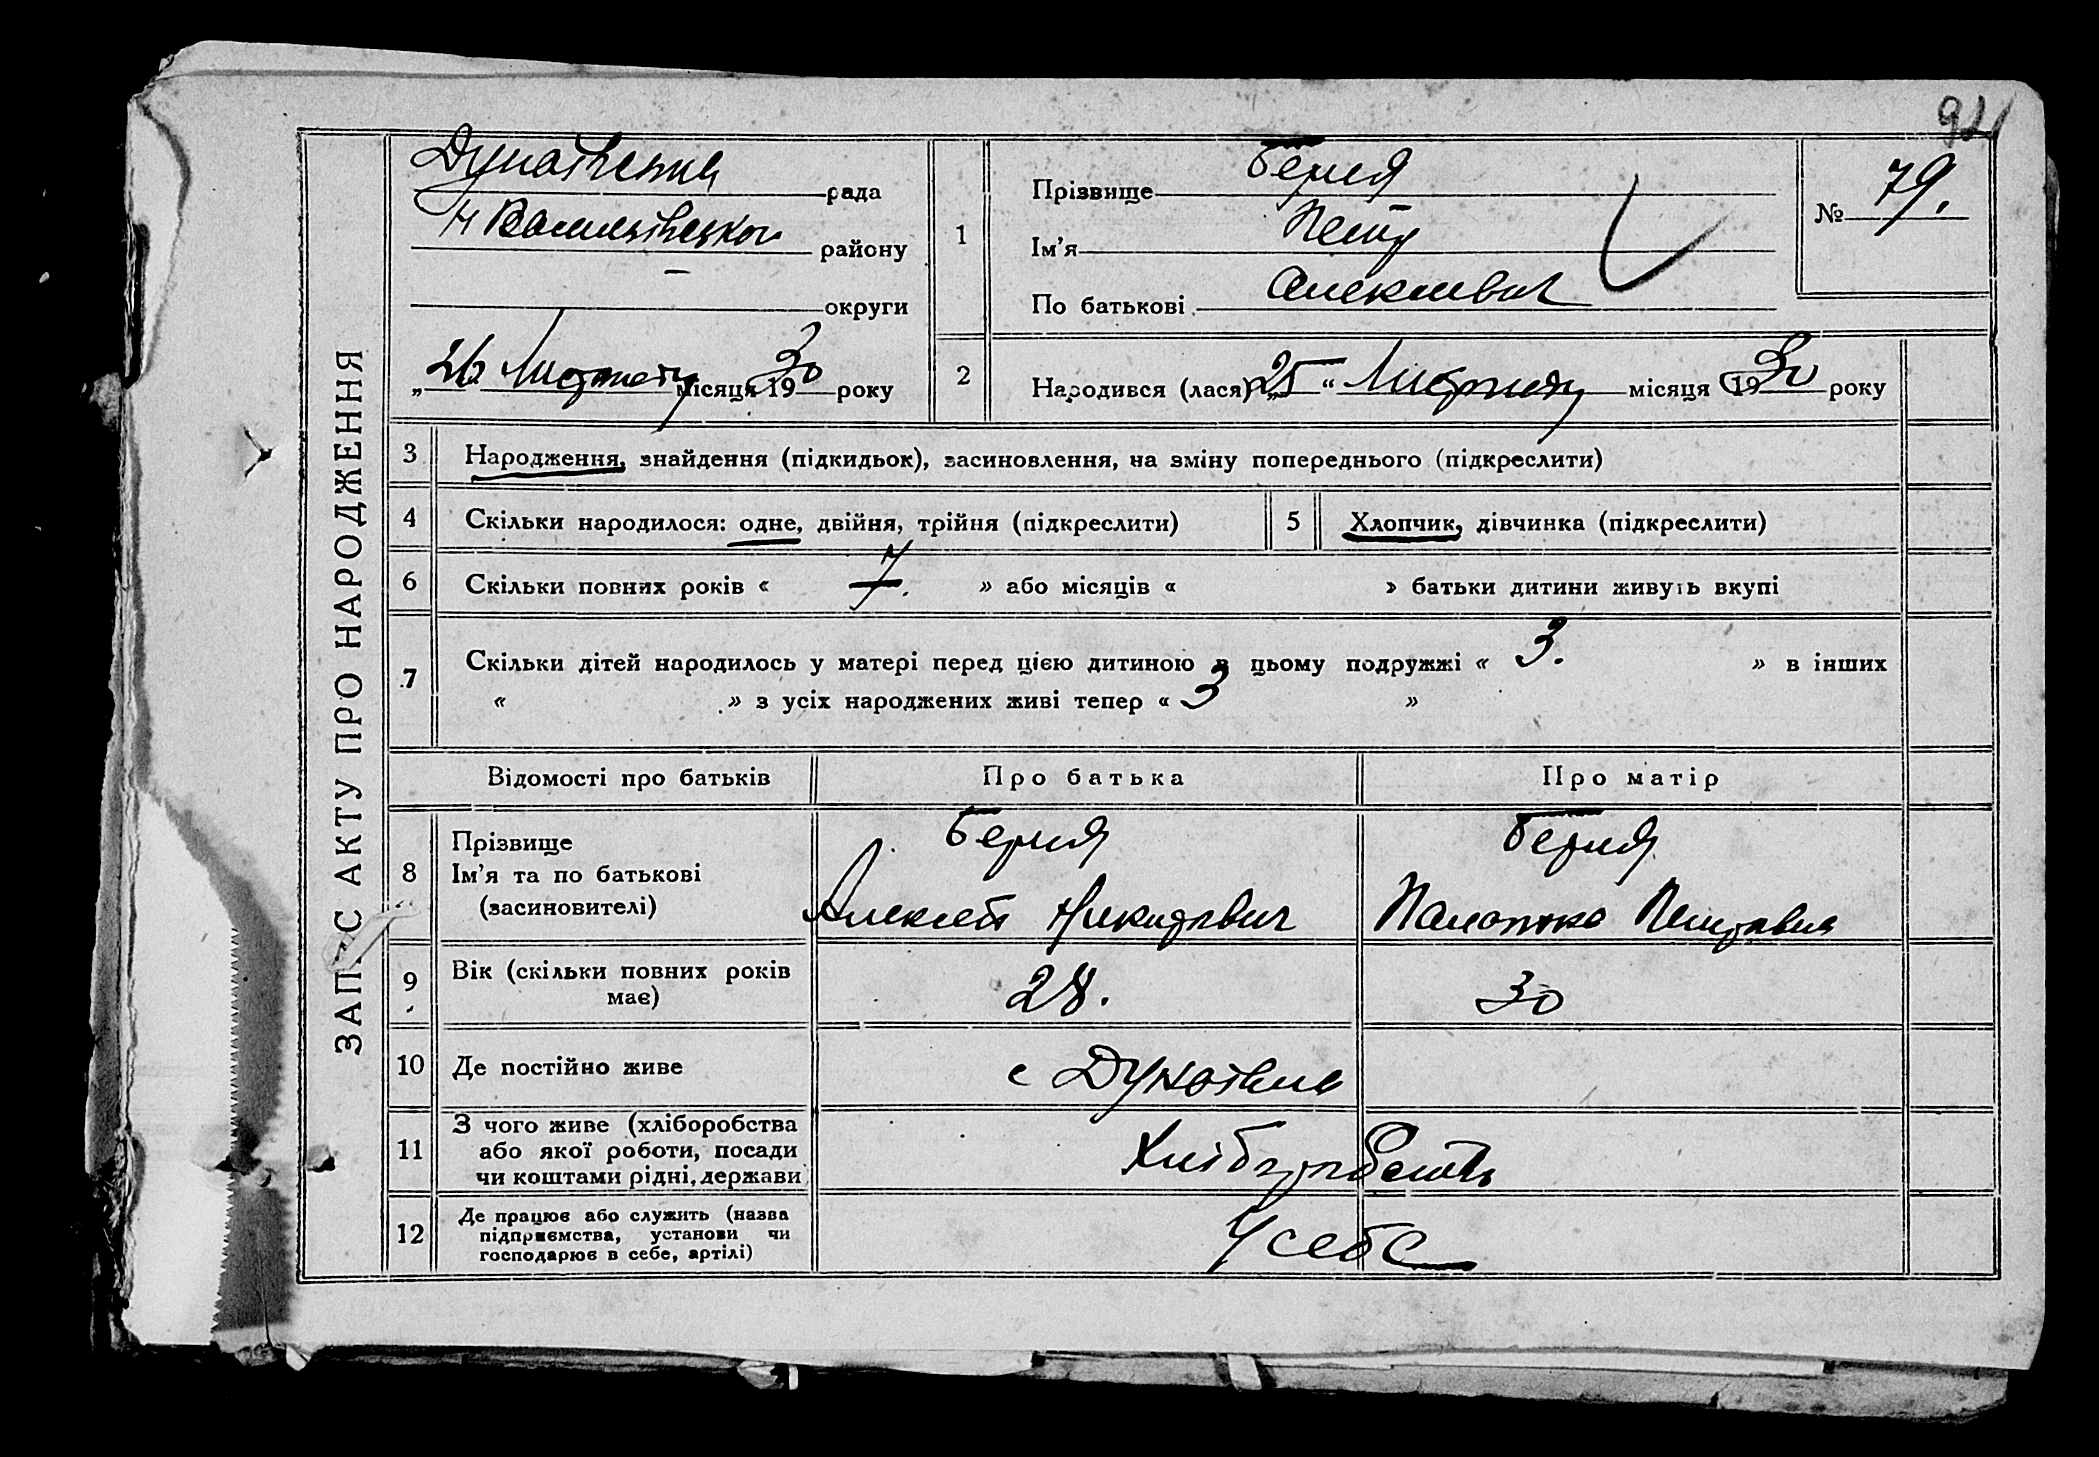 92
ЗАПИС АКТУ ПРО НАРОДЖЕННЯ
рада
району
округи
„26 Листопаду місяця 1930 року
1
Прізвище Берия
Ім'я Петр
По батькові Алексиевич
№ 79.
2
Народився (лася) „25" Листопаду місяця 1930 року
3 Народження, знайдення (підкидьок), засиновлення, на зміну попереднього (підкреслити)
4 Скільки народилося: одне, двійня, трійня (підкреслити) 5 Хлопчик, дівчинка (підкреслити)
6 Скільки повних років « 7. » або місяців « » батьки дитини живуть вкупі
7 Скільки дітей народилось у матері перед цією дитиною в цьому подружжі « 3. » в інших
« » з усіх народжених живі тепер « 3 »
Відомості про батьків Про батька Про матір
8 Прізвище Ім'я та по батькові (засиновителі)
Берия Берия
Алексей Никитович Петровна
9 Вік (скільки повних років має) 28. 30
10 Де постійно живе с
11 З чого живе (хліборобства або якої роботи, посади чи коштами рідні, держави
12 Де працює або служить (назва підприємства, установи чи господарює в себе, артілі) У себе